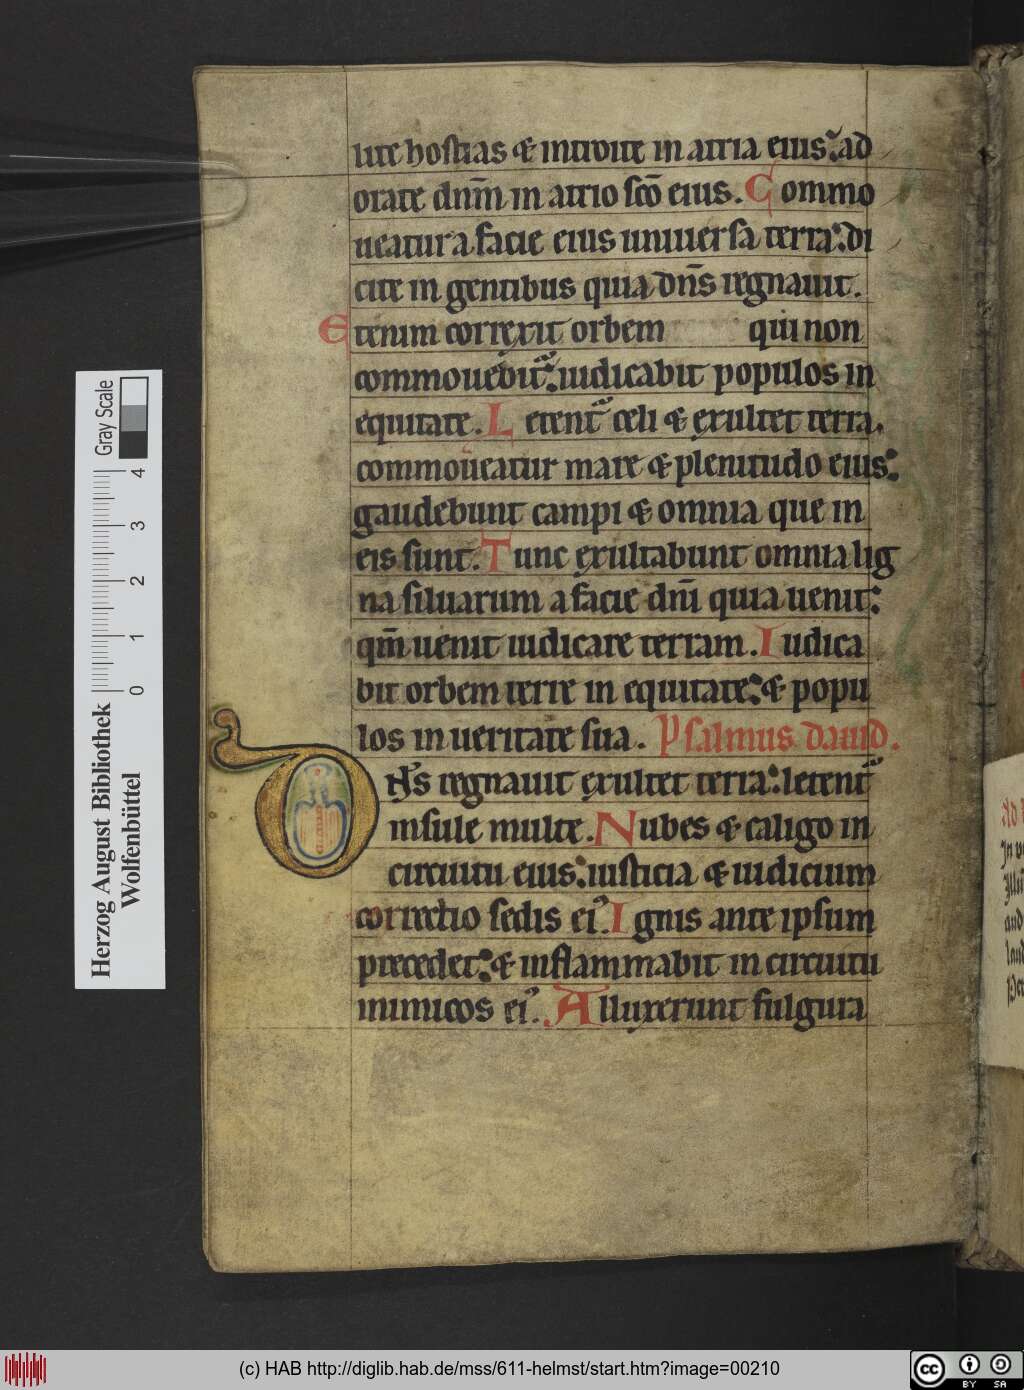 lite hostias & introite in atria eius: ad
orate dn̄m in atrio sc̄o eius. Commo
ueatur a facie eius uniuersa terra: di
cite in gentibus quia dn̄s regnauit.
Etenim correxit orbem qui non
commouebit᷑: iudicabit populos in
equitate. Letent᷑ celi & exultet terra.
commoueatur mare & plenitudo eius:
gaudebunt campi & omnia que in
eis sunt. Tunc exultabunt omnia lig
na siluarum a facie dn̄i quia uenit:
qm̄ uenit iudicare terram. Iudica
bit orbem terre in equitate: & popu
los in ueritate sua. Psalmus dauid.
DN̄s regnauit exultet terra: letent᷑
insule multe. Nubes & caligo in
circuitu eius: iusticia & iudicium
correctio sedis ei᾿. Ignis ante ipsum
precedet: & inflammabit in circuitu
inimicos ei᾿. Alluxerunt fulgura
Herzog August Bibliothek
Wolfenbüttel
0 1 2 3 4
Gray Scale
(c) HAB http://diglib.hab.de/mss/611-helmst/start.htm?image=00210
cc BY SA